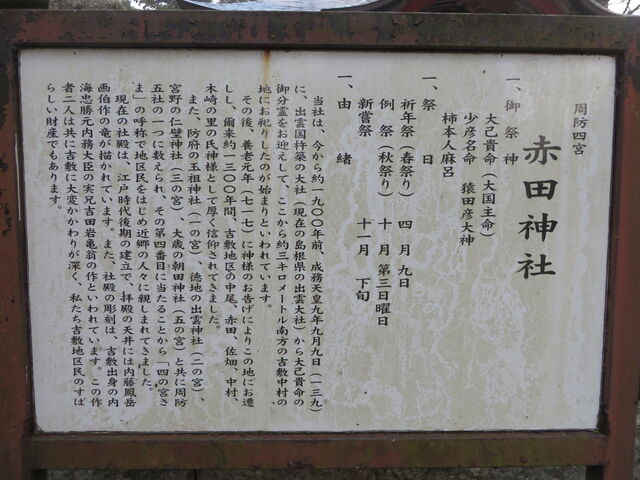 周防四宮
赤田神社
一、御祭神
大己貴命（大国主命）
少彦名命　猿田彦大神
柿本人麻呂
一、祭日
祈年祭（春祭り）　四月九日
例祭（秋祭り）　十月第三日曜日
新嘗祭　十一月下旬
一、由緒
当社は、今から約一九〇〇年前、成務天皇九年九月九日（一三九）
に、出雲国杵築の大社（現在の島根県の出雲大社）から大己貴命の
御分霊をお迎えして、ここから約三キロメートル南方の吉敷中村の
地にお祀りしたのが始まりといわれています。
その後、養老元年（七一七）に神様のお告げによりこの地にお遷
しし、爾来約一三〇〇年間、吉敷地区の中尾、赤田、佐畑、中村、
木崎の里の氏神様として厚く信仰されてきました。
また、防府の玉祖神社（一の宮）、徳地の出雲神社（二の宮）、
宮野の仁壁神社（三の宮）、大歳の朝田神社（五の宮）と共に周防
五社の一つに数えられ、その第四番目に当たることから「四の宮さ
ま」の呼称で地区民をはじめ近郷の人々に親しまれてきました。
現在の社殿は、江戸時代後期の建立で、拝殿の天井には内藤鳳岳
画伯作の竜が描かれています。また、社殿の彫刻は、吉敷出身の内
海忠勝元内務大臣の実兄吉田岩亀翁の作といわれています。この作
者二人は共に吉敷に大変かかわりが深く、私たち吉敷地区民のすば
らしい財産でもあります。